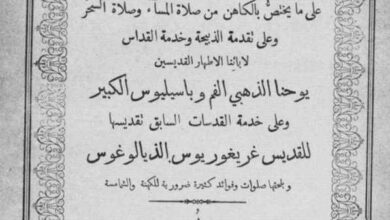 على ما يختص بالكاهن من صلاة المساء وصلاة السحر
وعلى تقدمة الذبيحة وخدمة القداس
لابائنا الاطهار القديسين
يوحنا الذهبي الفم وباسيليوس الكبير
وعلى خدمة القدسات السابق تقديسها
للقديس غريغوريوس الذيالوغوس
ويلحقها صلوات وفوائد كثيرة ضرورية للكهنة والشمامسة